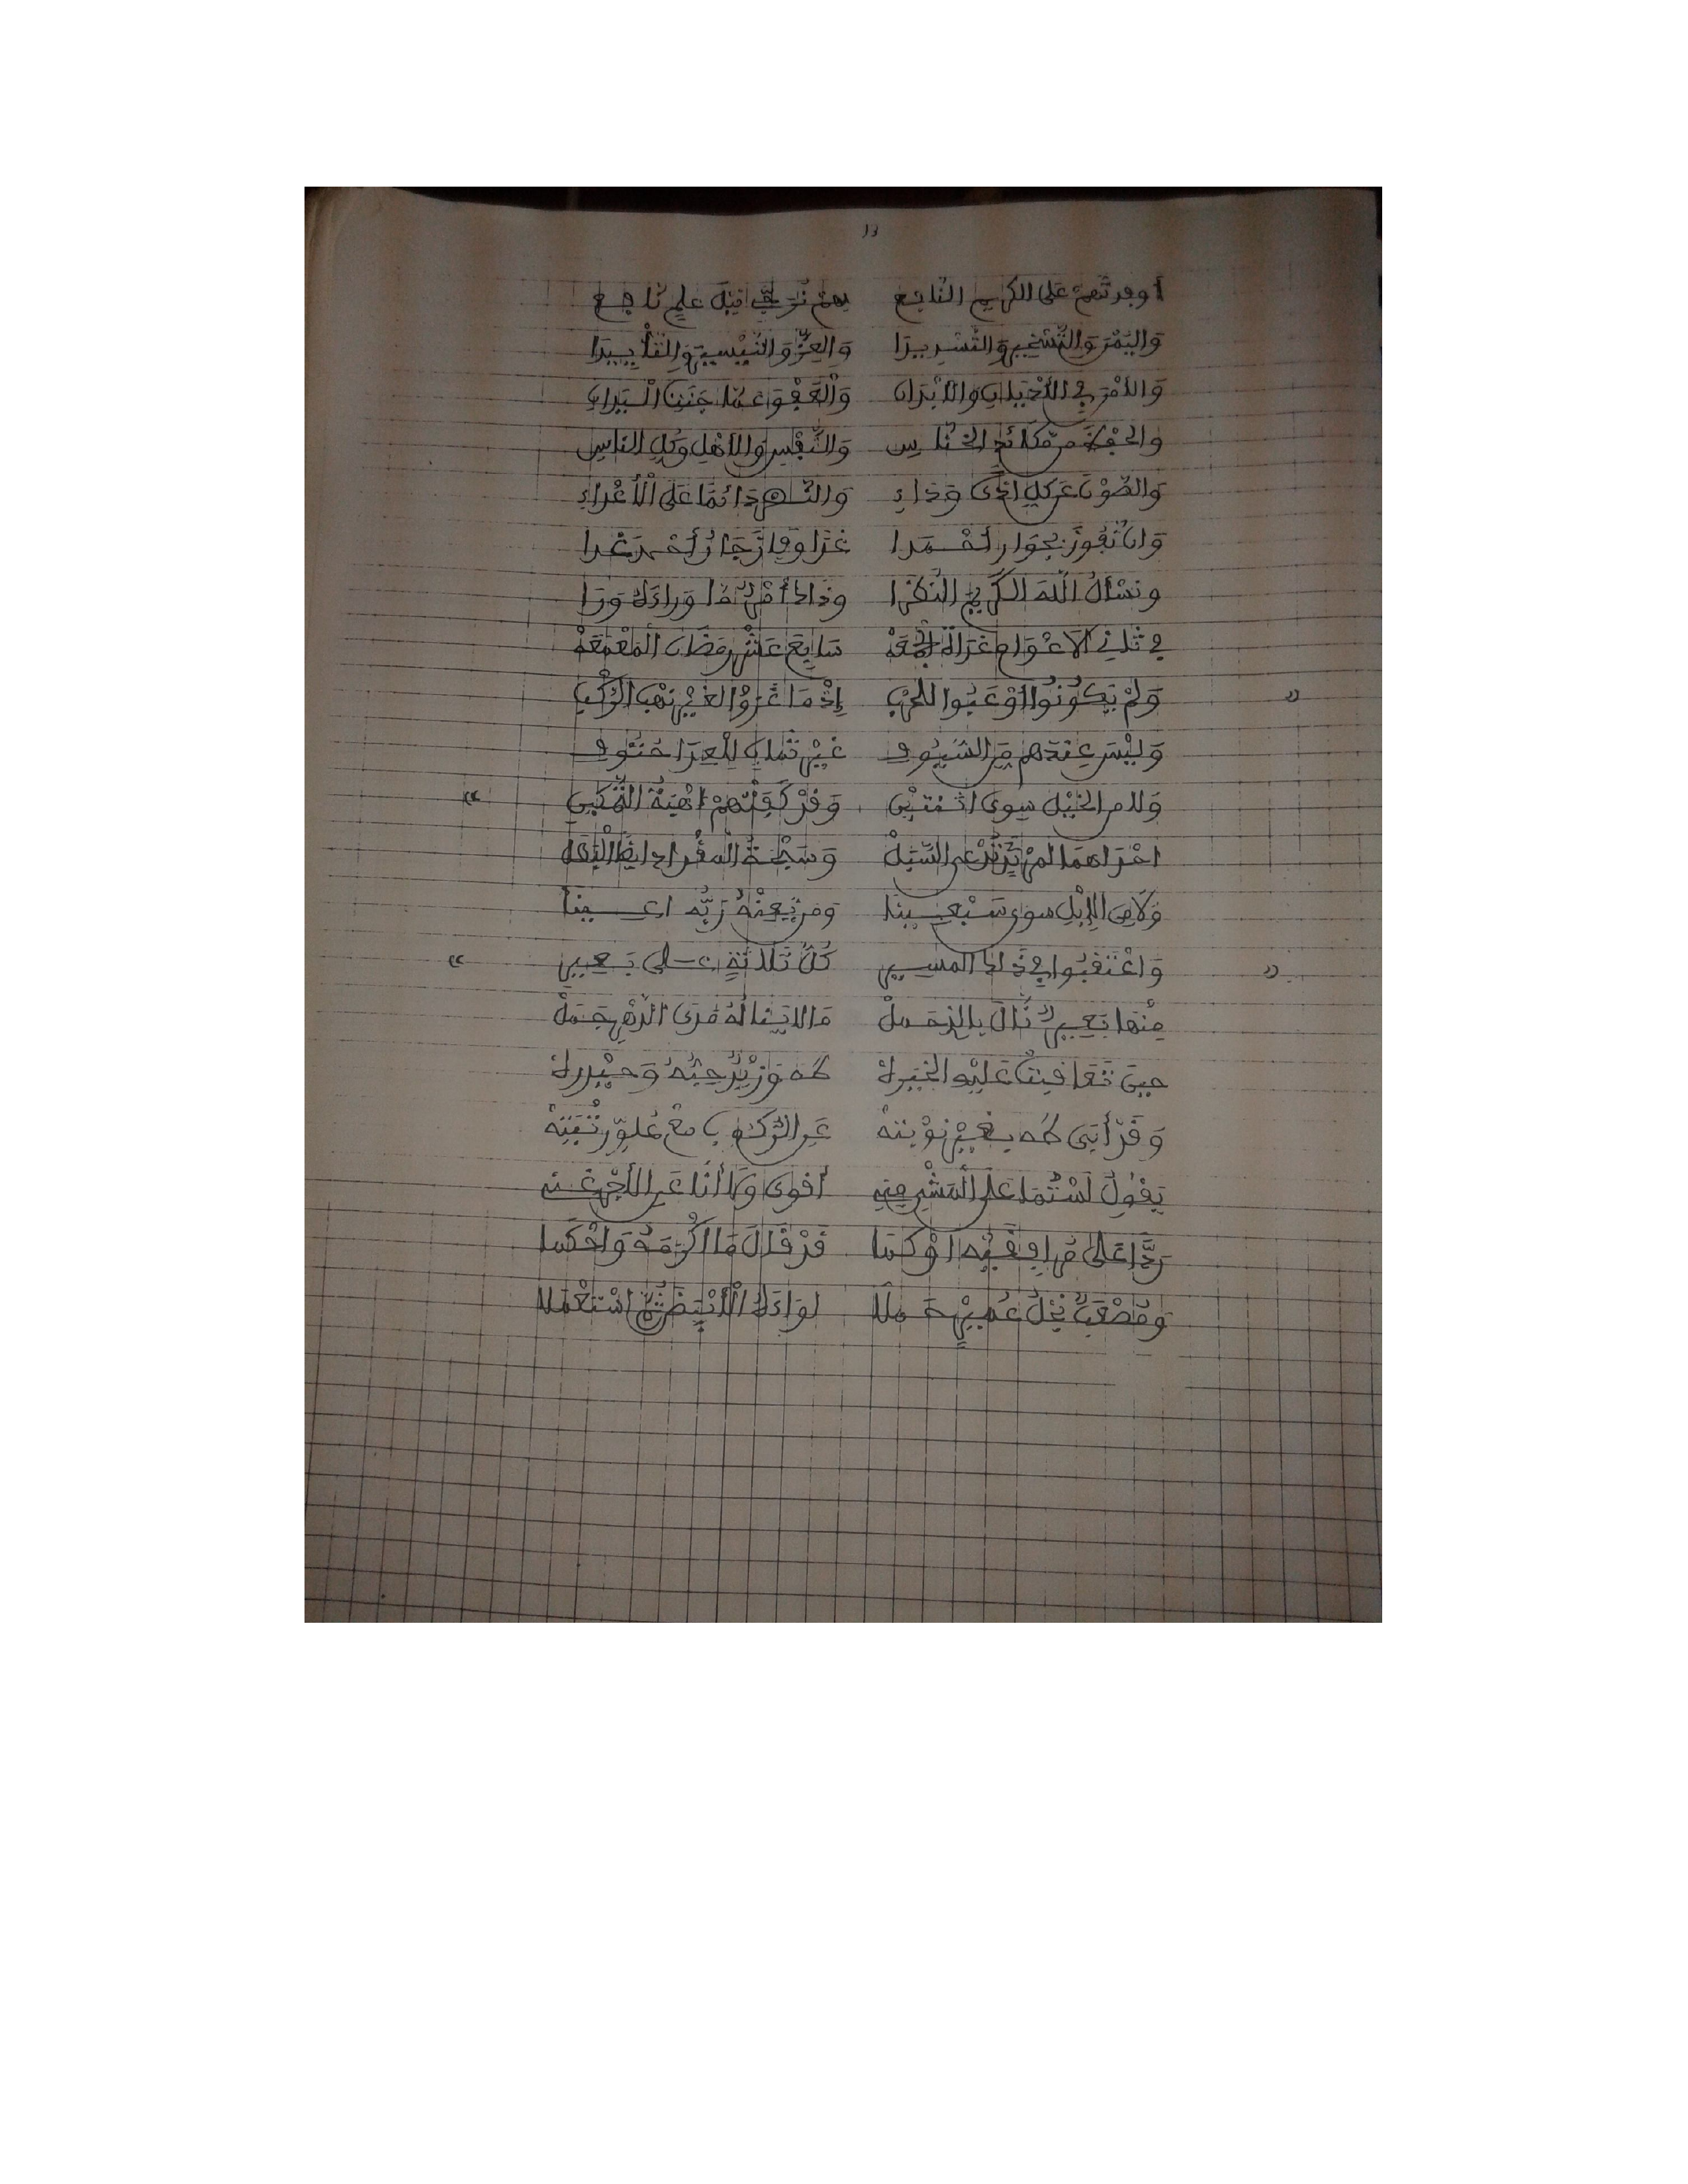 13
أوفدتهم على الكريم النافع بهم نرتجي نيل علم نافع
وَاليُمْنَ وَالتَّسْخِيرَ وَالتَّسْدِيدَا وَالعِزَّ وَالتَّيْسِيرَ وَالتَّأْيِيدَا
وَالأَمْنَ فِي الأَدْيَانِ وَالأَبْدَانِ وَالْعَفْوَ عَمَّا جَنَتِ الْيَدَانِ
والحفظ من مكائد الخناس وَالنَّفْسِ وَالأَهْلِ وَكُلِّ النَّاسِ
وَالصَّوْنَ عَن كُلِّ أَذًى وَدَاءِ وَالنَّصْرَ دَائِمًا عَلَى الْأَعْدَاءِ
وَأَن نَفُوزَ بِجِوَارِ أَحْمَدَا غَدًا وَفَازَ جَارُ أَحْمَدَ غَدَا
ونسأل الله الكريم النظرا وذاك أقصى ما وراءك ورا
فِي ثَانِي الاَعْوَامِ غَزَاةُ الجُمُعَهْ سَابِعَ عَشْرِ رَمَضَانَ الْمَعْمَعَهْ
وَلَمْ يَكُونُوا أَوْعَبُوا لِلحَرْبِ إِذْ مَا غَزَوْا لِغَيْرِ نَهْبِ الرَّكْبِ
وَلَيْسَ عِندَهُم مِنَ السُّيُوفِ غَيْرُ ثَمَانٍ لِلْعِدَا حُتُوفِ
وَلَا مِن الخَيْلِ سِوَى اثْنَتَيْنِ وَقَدْ كَفَتْهُمْ أُهْبَةُ
احداهما لم عن السبل وَسَبْحَةُ المقداد
وَلَا مِنَ الإِبْلِ سِوَى سَبْعِينَا وَمَن يُعِنْهُ رَبُّهُ أُعِينَا
وَاعْتَقَبُوا فِي ذَلِكَ المَسِيرِ كُلُّ ثَلَاثَةٍ عَلَى بَعِيرِ
مِنْهَا بَعِيرٌ نَالَ بِالزَّحْمَلْ مَا لَا يَنَالُهُ مَدَى الدَّهْرِ جَمَلْ
حِينَ تَعَاقَبَتْ عَلَيْهِ الخِيَرَهْ طَهَ وَزَيْدٌ حِبُّهُ وَحَيْدَرَهْ
وَقَدْ أَبَى طَهَ بِغَيْرِ نَوْبَتِهْ عَنِ الرُّكُوبِ مَعْ عُلُوِّ رُتْبَتِهْ
يَقُولُ لَسْتُمَا عَلَى الْمَشْيِ مِنِهْ أَقْوَى وَلَا أَنَا عَنِ الأَجْرِ غَنِهْ
رَدًّا عَلَى مُرَافِقَيْهِ أَوْ كَمَا قَدْ قَالَ مَا أَكْرَمَهُ وَأَحْكَمَا
وَمُصْعَبٌ نَجْلُ عُمَيْرٍ حَمَلَا لِوَاءَهُ الْأَبْيَضَ ثُمَّ اسْتَعْمَلَا